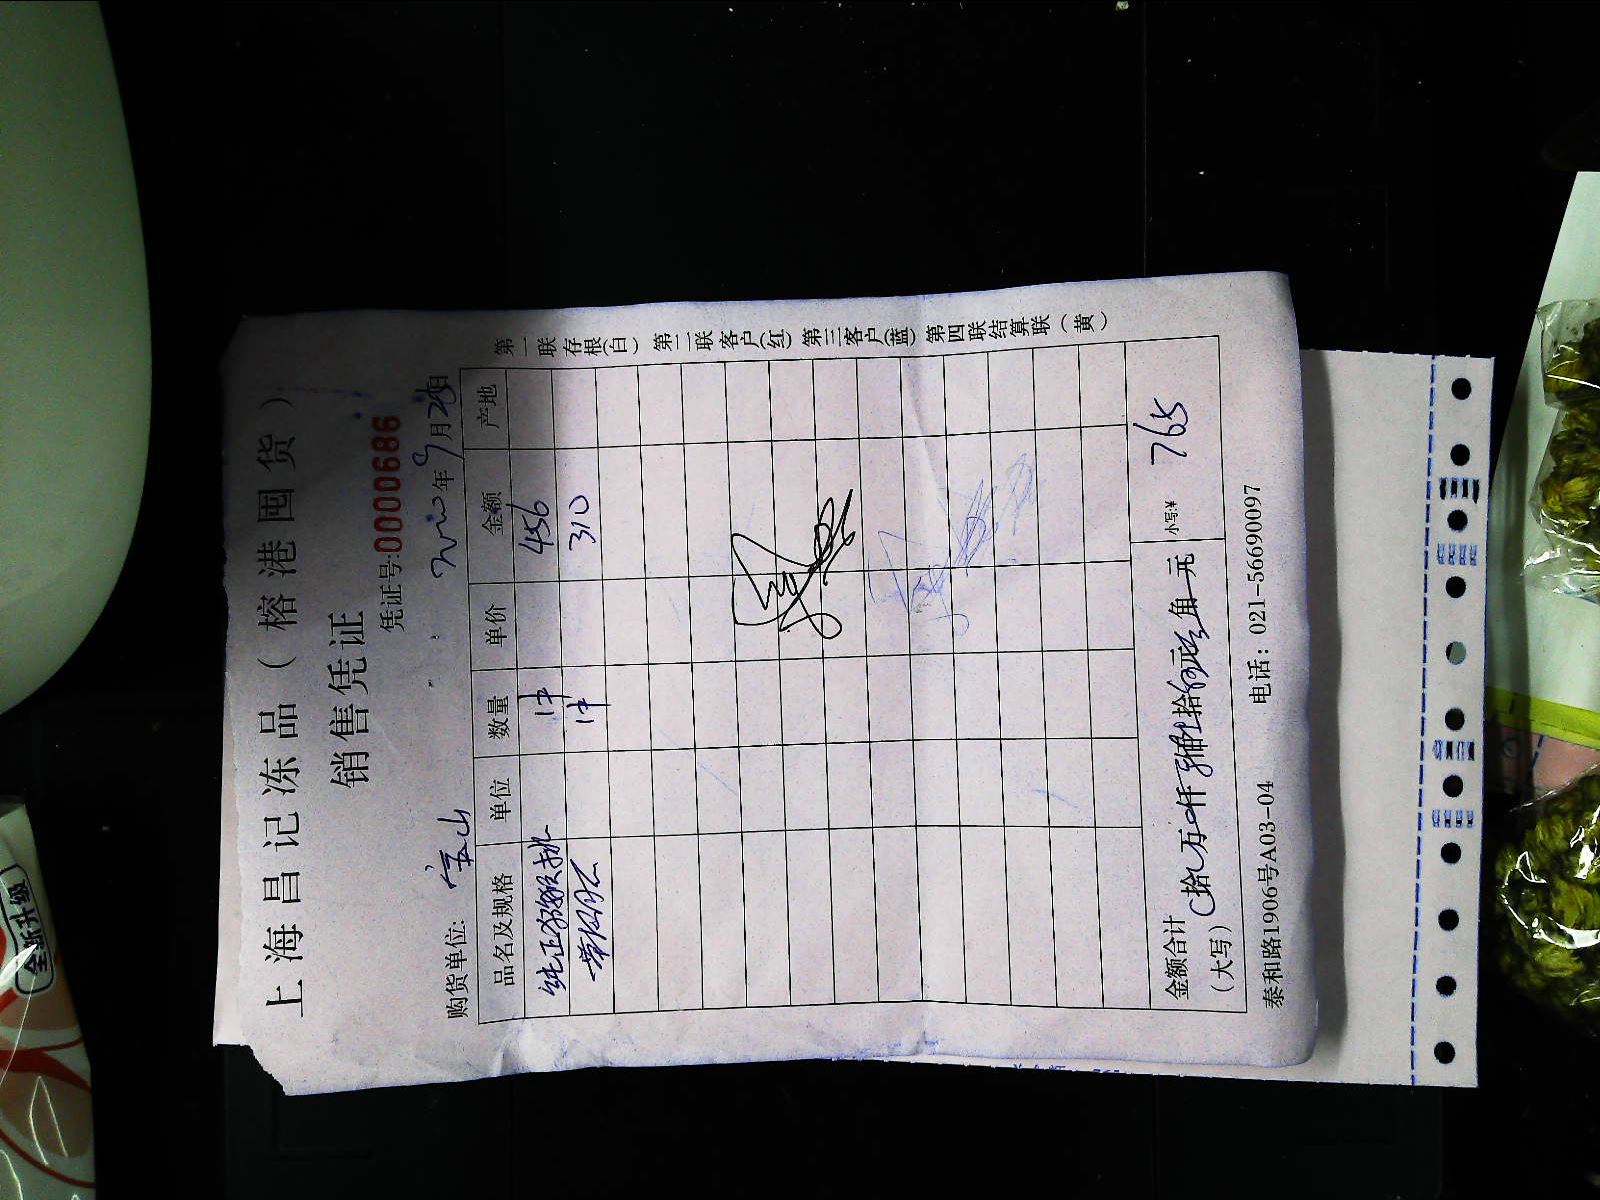 上海昌记冻品（榕港囤货）
销售凭证
凭证号:0000686
购货单位: 宝山 年9月28日
品名及规格 单位 数量 单价 金额 产地
1件 456
1件 310
金额合计（大写） 拾 万 仟 佰 拾 元 角 元 小写:¥ 765
泰和路1906号A03-04 电话：021-56690097
第一联存根(白) 第二联客户(红) 第三客户(蓝) 第四联结算联（黄）
全新升级